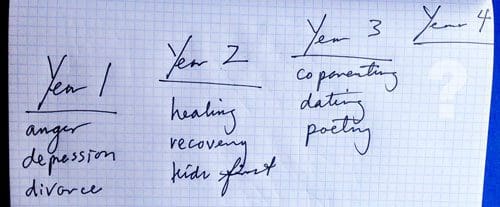 Year 1
anger
depression
divorce
Year 2
healing
recovery
kids first
Year 3
coparenting
dating
poetry
Year 4
?